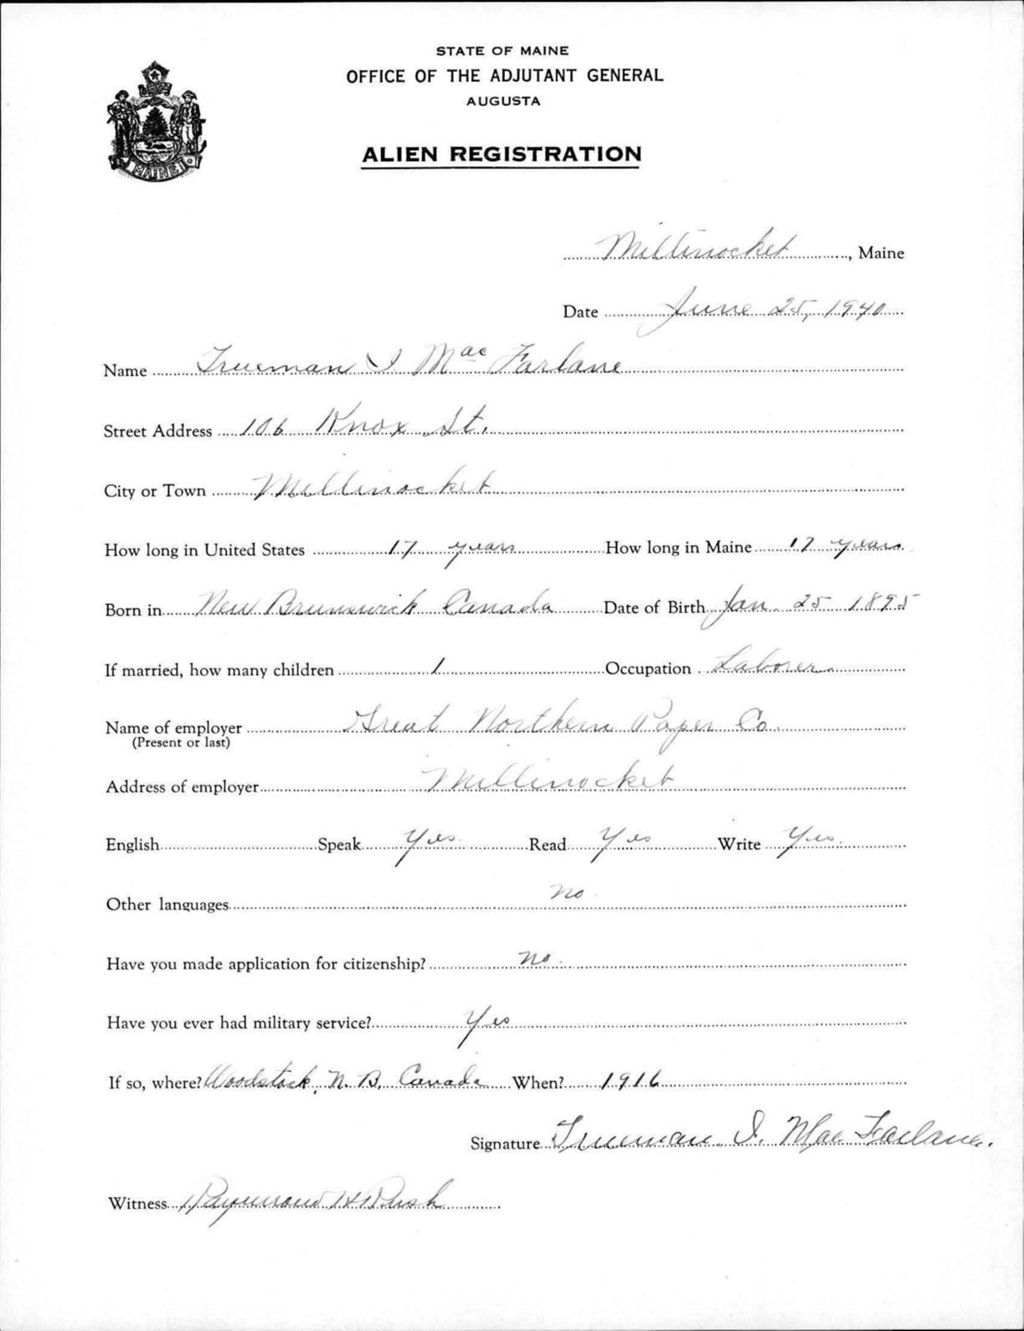 STATE OF MAINE
OFFICE OF THE ADJUTANT GENERAL
AUGUSTA
ALIEN REGISTRATION
MAINE
Millinocket, Maine
Date June 25, 1940
Name Trueman I Mac Farlane
Street Address 106 Knox St.
City or Town Millinocket
How long in United States 17 years How long in Maine 17 years
Born in New Brunswick Canada Date of Birth Jan. 25 1895
If married, how many children 1 Occupation Laborer
Name of employer Great Northern Paper Co.
(Present or last)
Address of employer Millinocket
English Speak Yes Read Yes Write Yes
Other languages no
Have you made application for citizenship? no
Have you ever had military service? Yes
If so, where? Woodstock, N. B. Canada When? 1916
Signature Trueman I. Mac Farlane.
Witness Raymond H Rush